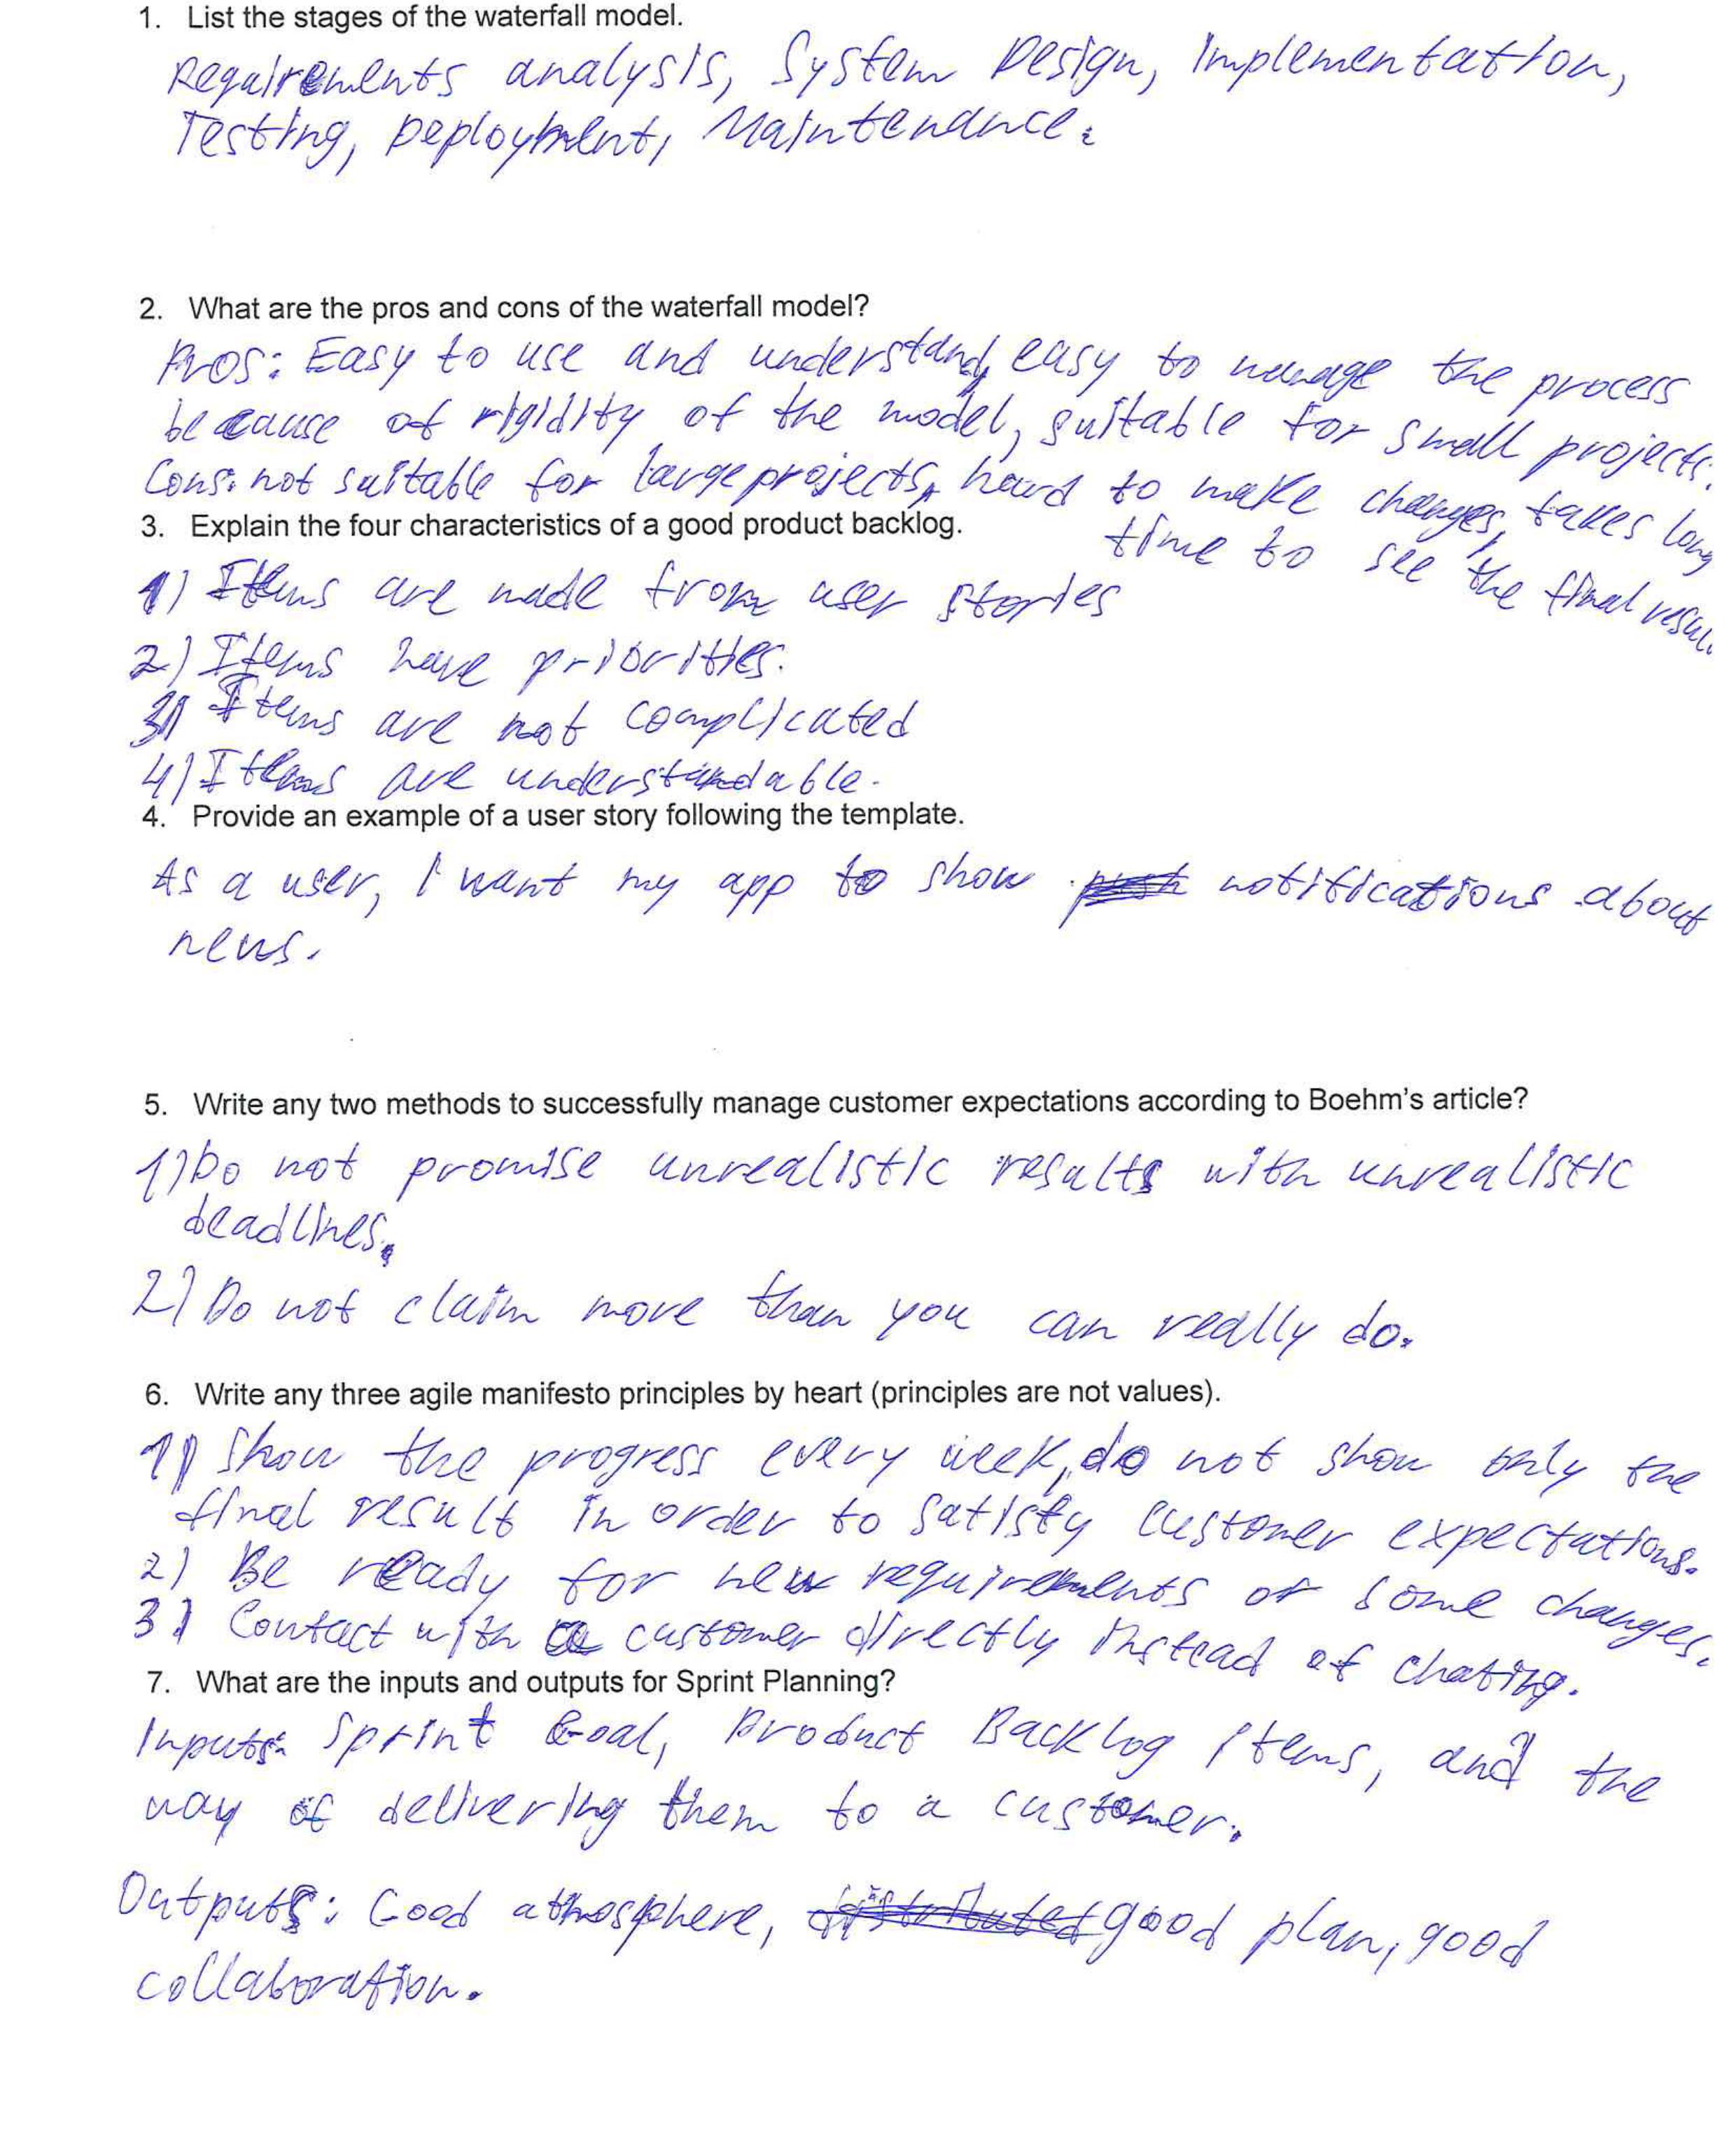 1. List the stages of the waterfall model.
Requirements analysis, System Design, Implementation,
Testing, Deployment, Maintendance.
2. What are the pros and cons of the waterfall model?
Pros: Easy to use and understand, easy to manage the process
because of rigidity of the model, suitable for small projects.
Cons: not suitable for large projects, hard to make changes, takes long
time to see the final resul.
3. Explain the four characteristics of a good product backlog.
1) Items are made from user stories
2) Items have priorities.
3) Items are not complicated
4) Items are understandable.
4. Provide an example of a user story following the template.
As a user, I want my app to show notifications about
news.
5. Write any two methods to successfully manage customer expectations according to Boehm's article?
1) Do not promise unrealistic results with unrealistic
deadlines.
2) Do not claim more than you can really do.
6. Write any three agile manifesto principles by heart (principles are not values).
1) Show the progress every week, do not show only the
final result in order to satisfy customer expectations.
2) Be ready for new requirements or some changes.
3) Contact with a customer directly instead of chating.
7. What are the inputs and outputs for Sprint Planning?
Inputs: Sprint Goal, Product Backlog items, and the
way of delivering them to a customer.
Outputs: Good athosphere, good plan, good
collaboration.